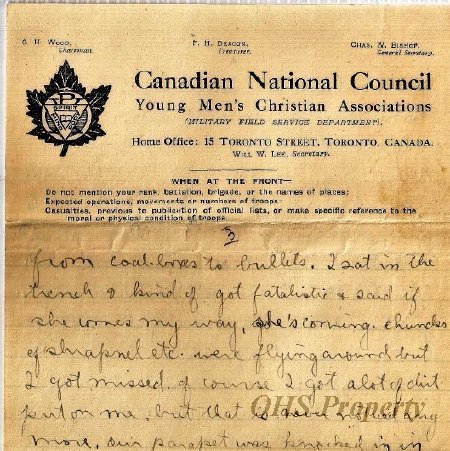 G. H. Wood, Chairman. F. H. Deacon, Treasurer. Chas. W. Bishop, General Secretary.
Canadian National Council
Young Men's Christian Associations
(MILITARY FIELD SERVICE DEPARTMENT).
Home Office: 15 TORONTO STREET, TORONTO, CANADA.
Will W. Lee, Secretary.
WHEN AT THE FRONT—
Do not mention your rank, battalion, brigade, or the names of places;
Expected operations, movements or numbers of troops;
Casualties, previous to publication of official lists, or make specific reference to the
moral or physical condition of troops.
3
from coal-boxes to bullets. I sat in the
trench & kind of got fatalistic & said if
she comes my way, she's coming. chuncks
of shrapnel etc. were flying around but
I got missed, of course I got a lot of dirt
put on me, but that is
QHS Property
more. Our parapet was knocked in in